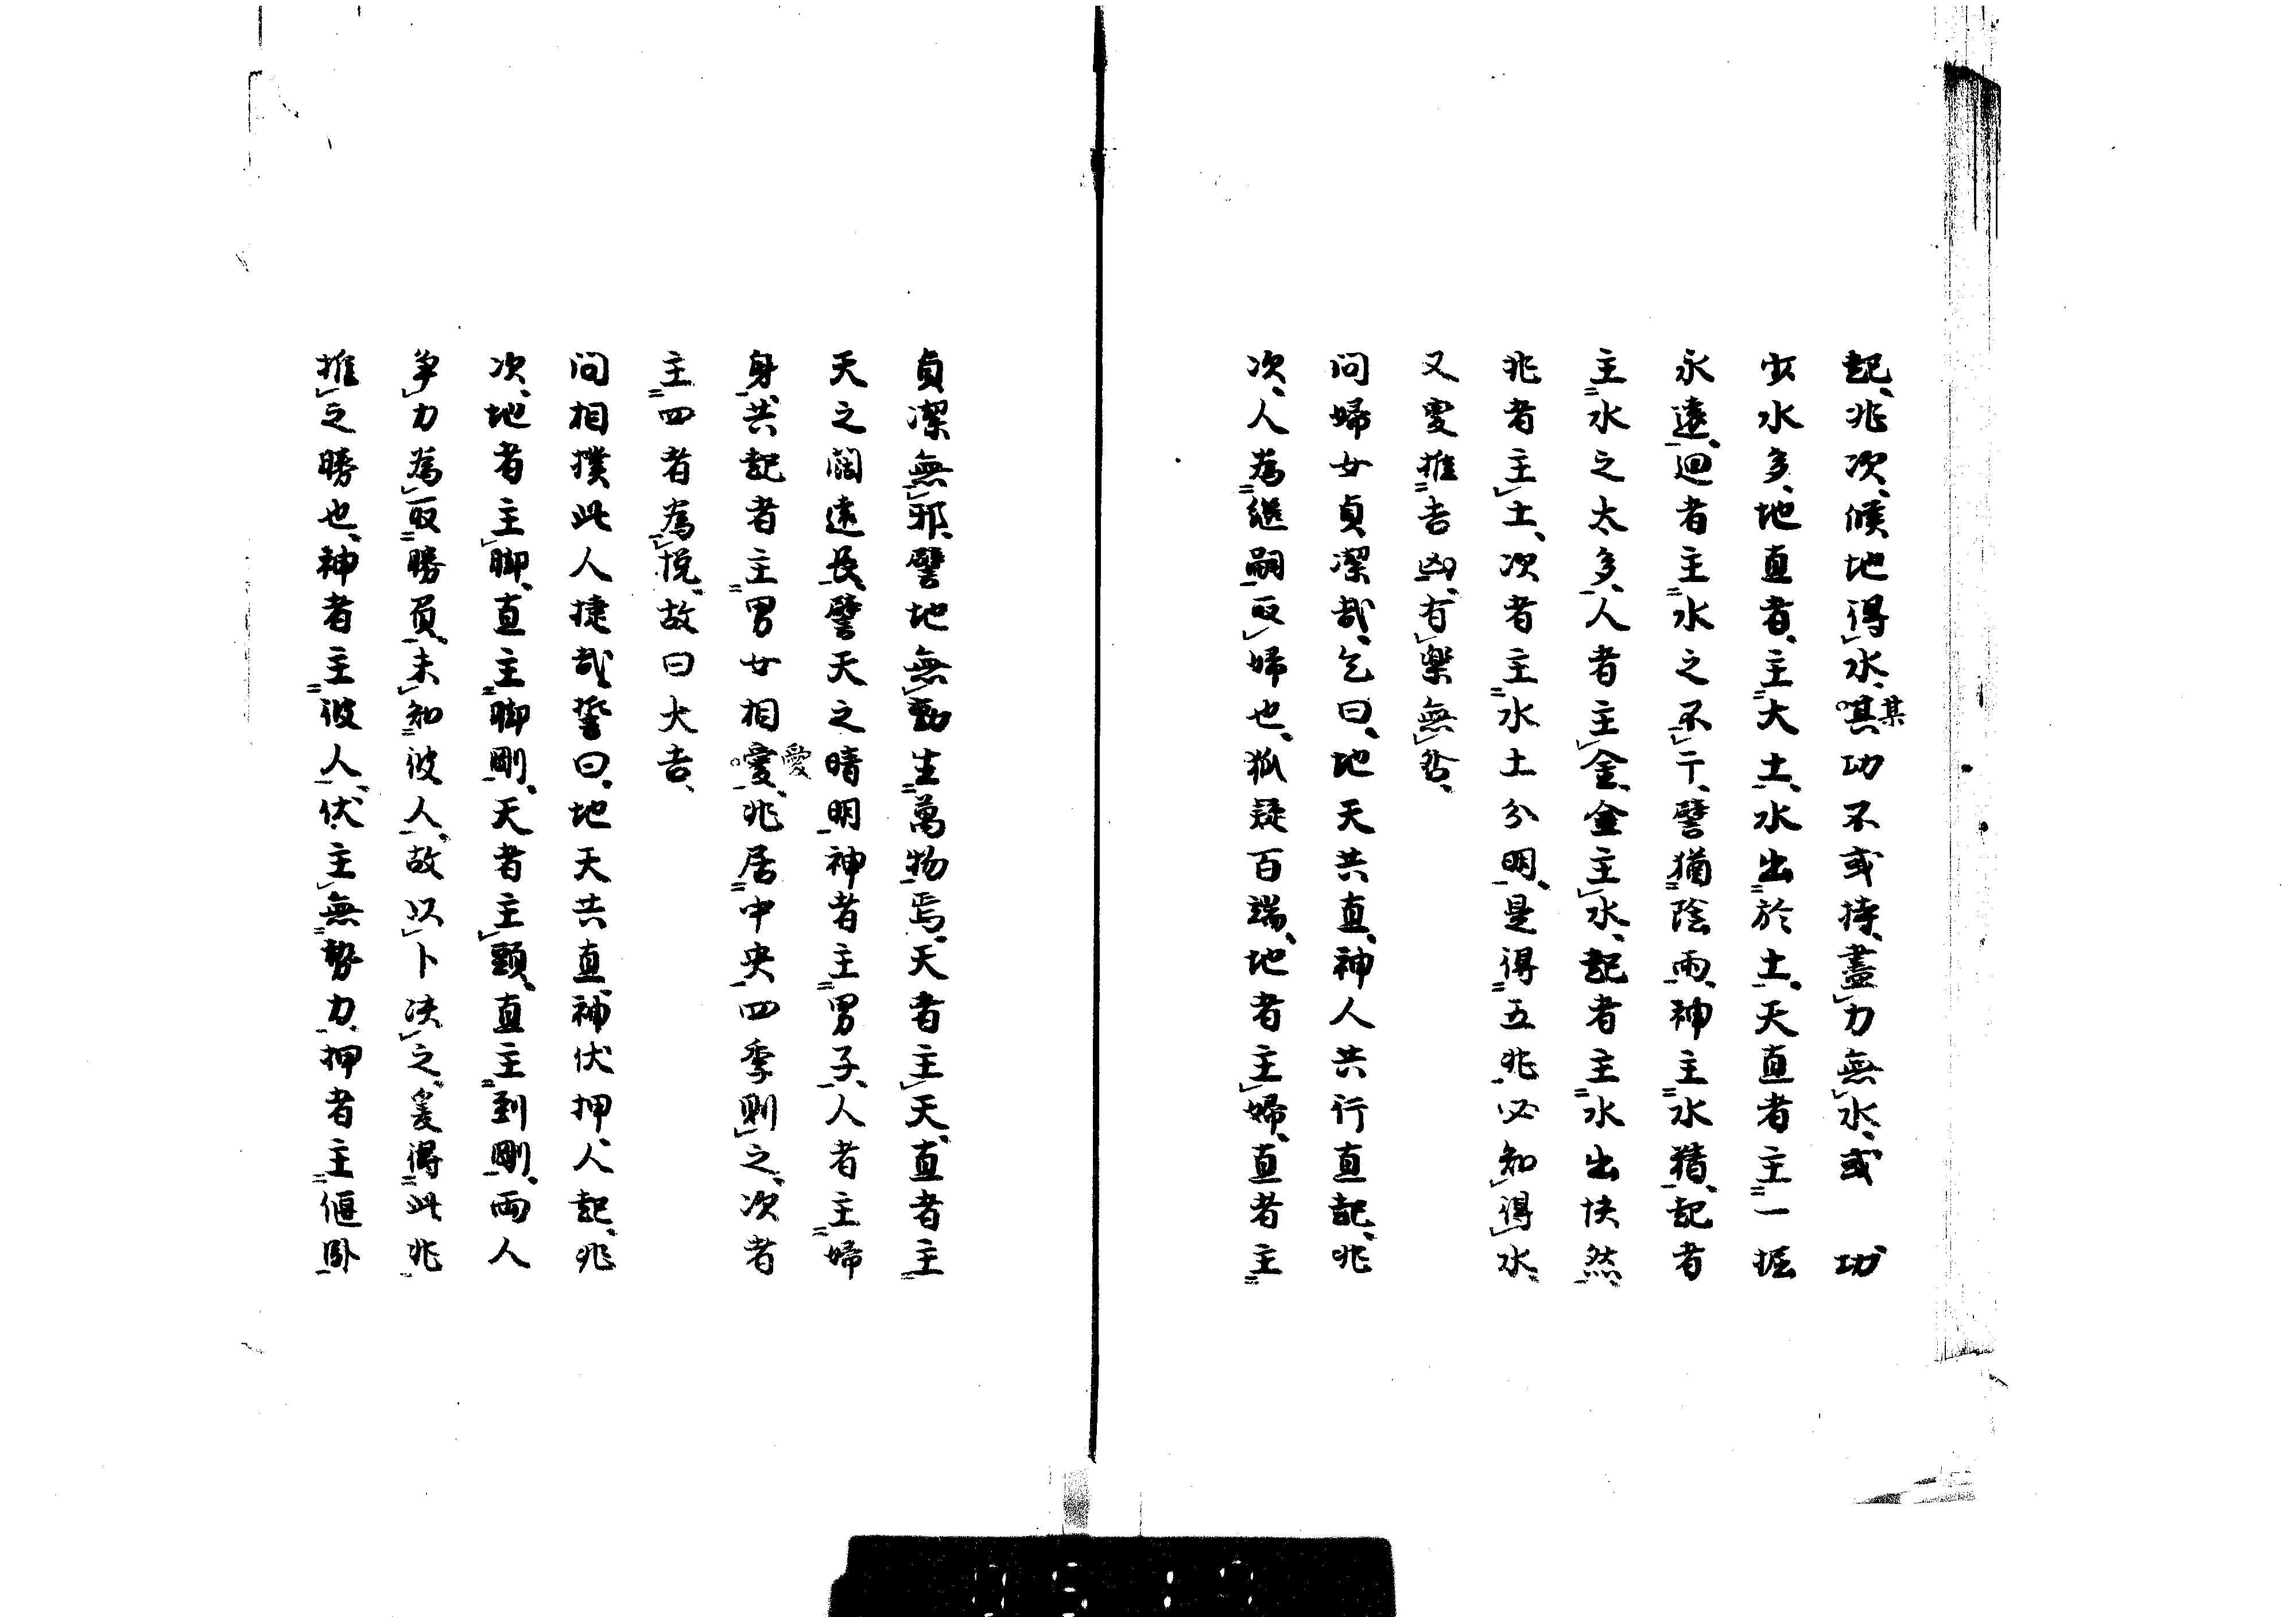 起、兆次、候地得水、㫷某功不或持、盡力無水、或功
少水多、地直者、主大土、水出於土、天直者主一掘
永遠、廻者主水之不干、譬猶陰雨、神主水積、起者
主水之太多、人者主金、金主水、起者主水出快然、
兆者主土、次者主水土分明、是得五兆必知得水、
又更推吉凶、有樂無咎、
問婦女貞潔哉、乞曰、地天共直、神人共行直起、兆
次、人為継嗣取婦也、狐疑百端、地者主婦、直者主
貞潔無邪、譬地無動生萬物焉、天者主天、直者主
天之濶遠長、譬天之晴明神者主男子、人者主婦
身、共起者主男女相愛愛、兆居中央四季則之、次者
主四者為悦、故曰大吉、
問相撲此人捷哉誓曰、地天共直、神伏押人起、兆
次、地者主脚、直主脚剛、天者主頸、直主到剛、両人
争力為取勝負、未知彼人、故以卜决之、爰得此兆
推之勝也、神者主彼人、伏主無勢力、押者主偃卧